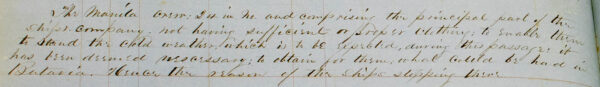 The Manila crew: 24 in no and comprising the principal part of the
ships company: not having sufficient or proper clothing; to enable them
to stand the cold weather, which is to be expected, during this passage: it
has been deemed necessary; to obtain for them, what could be had in
Batavia. Hence the reason of the ships stopping there